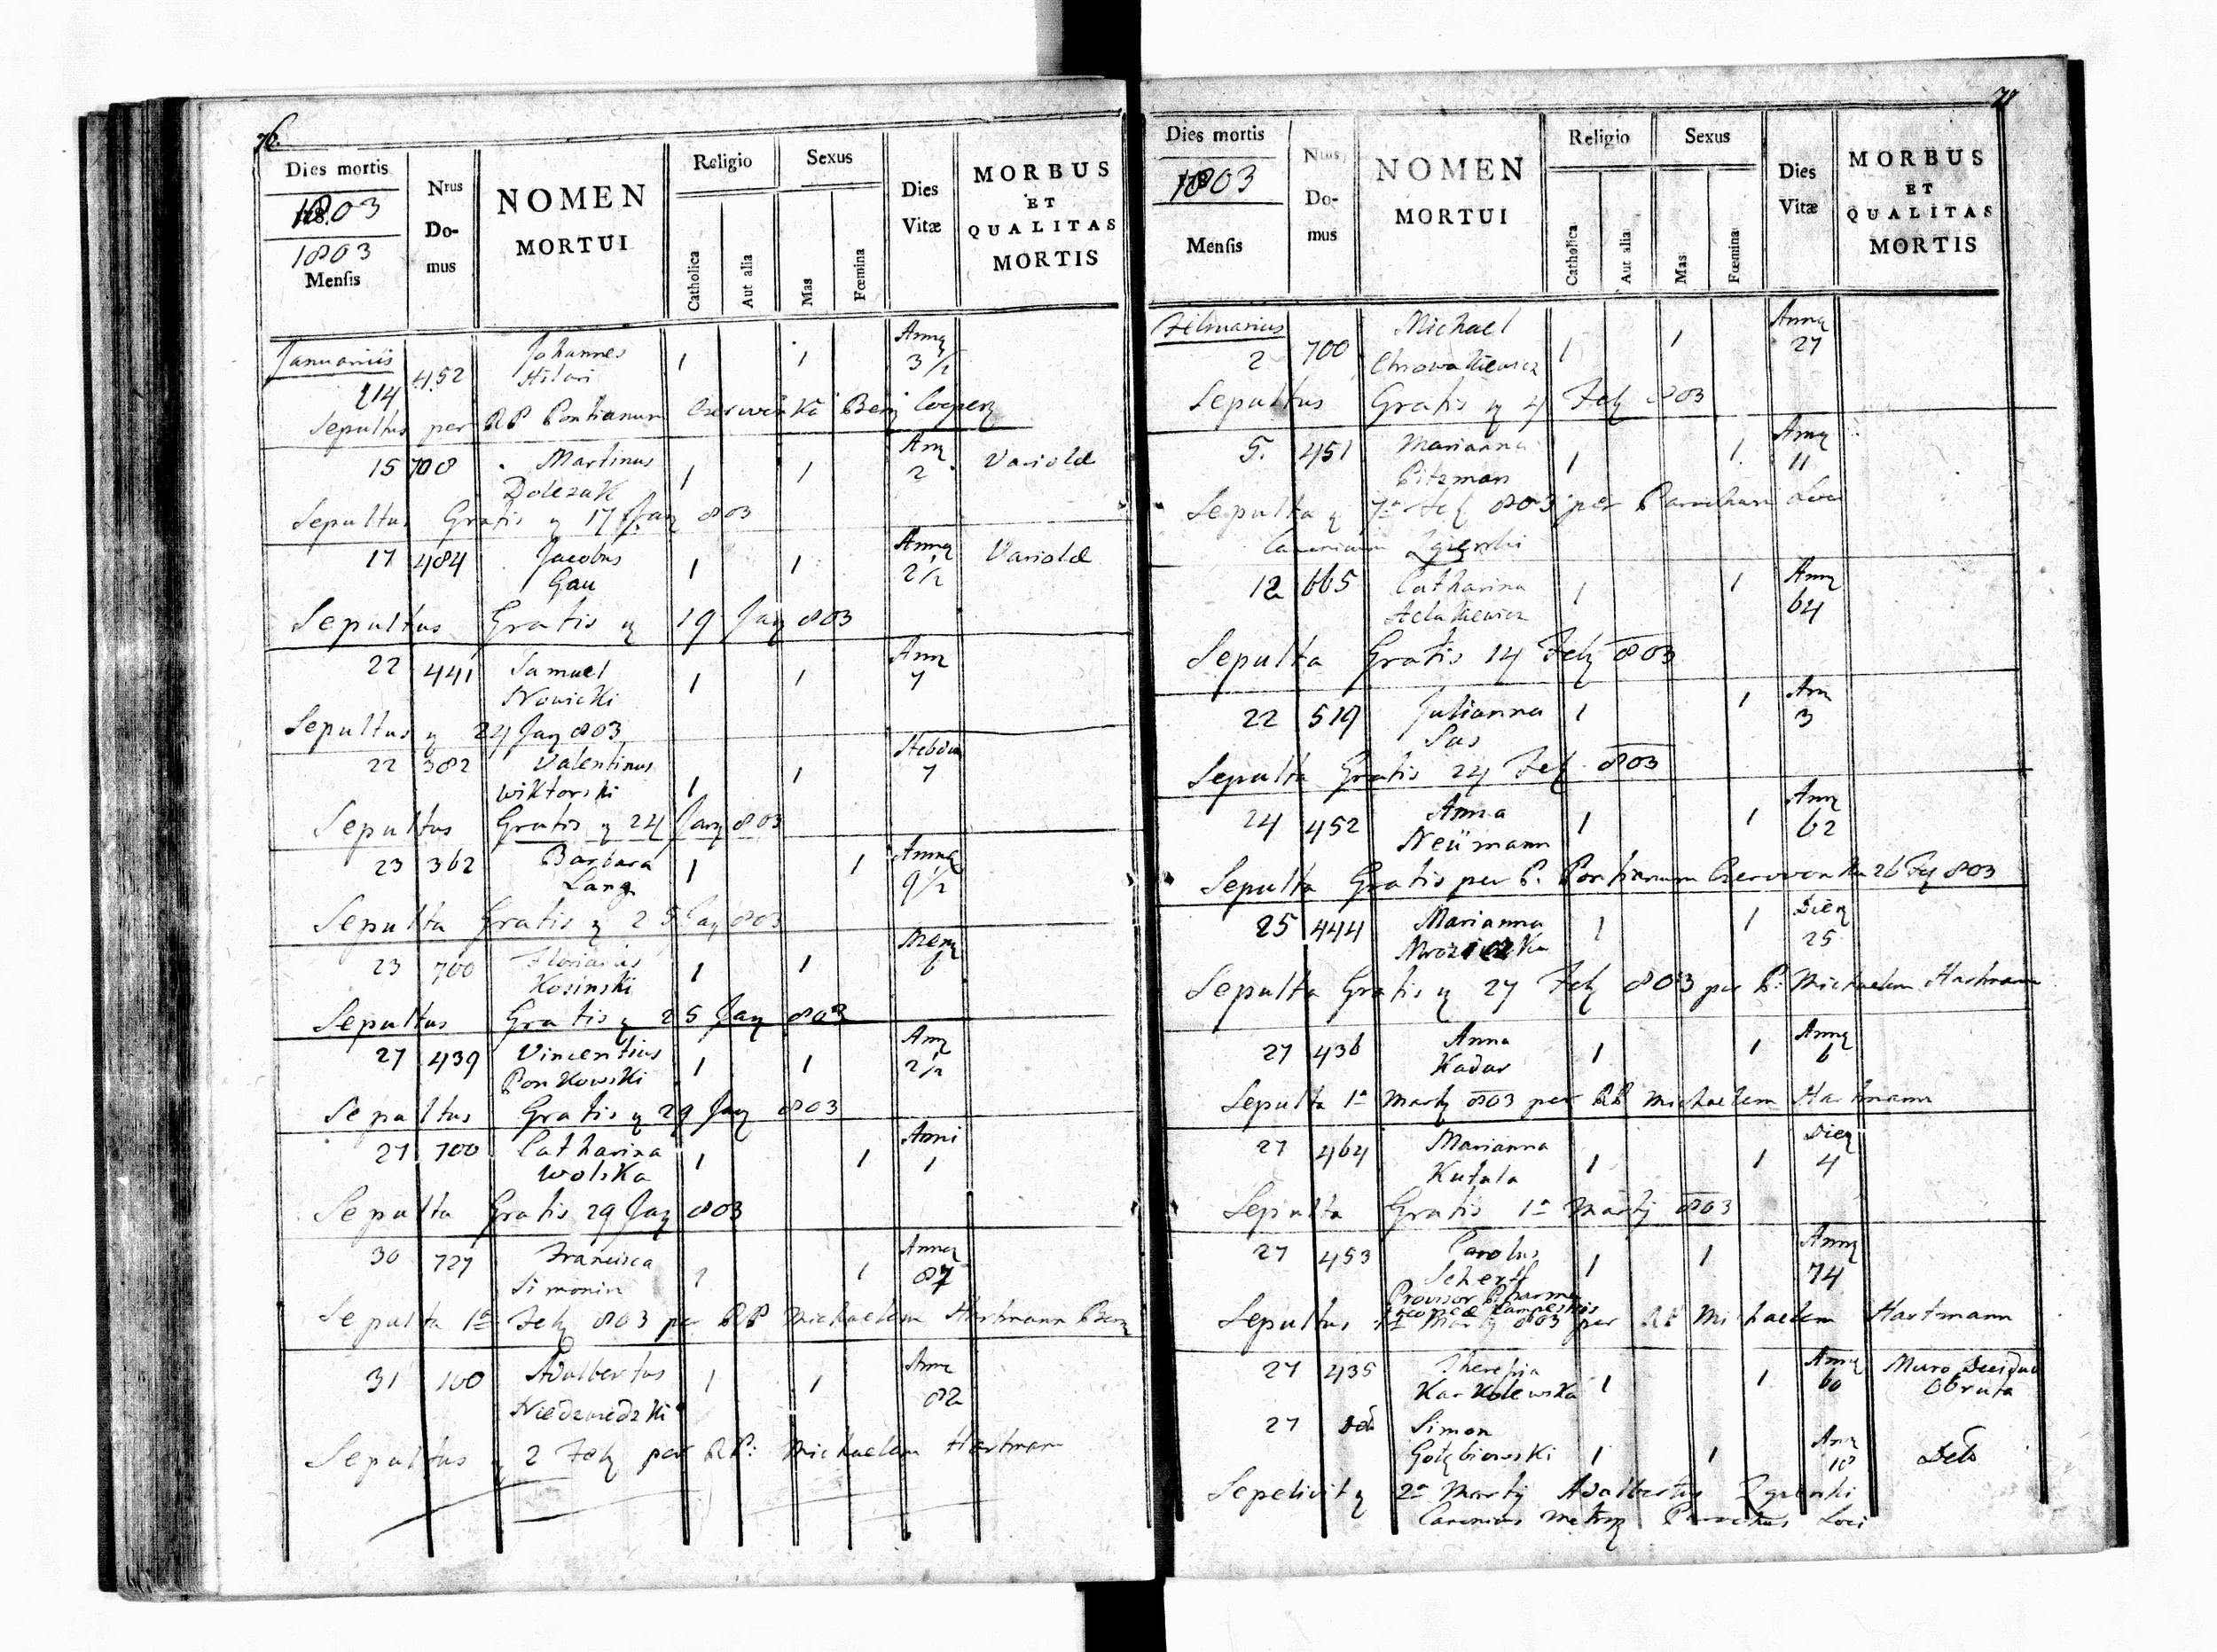 76.
Dies mortis
1803
1803
Mensis
Nrus
Do-
mus
NOMEN
MORTUI
Religio
Catholica
Aut alia
Sexus
Mas
Fœmina
Dies
Vitæ
MORBUS
ET
QUALITAS
MORTIS
Januarius
214 452 Johannes Hilari 1 1 Anny 3 1/2
Sepultus per RP Pontianum Czerwinka Benj Cooperz
15 708 Martinus Dolezak 1 1 Any 2 Variolæ
Sepultus Gratis y 17 Jany 803
17 484 Jacobus Gau 1 1 Anny 2 1/2 Variolæ
Sepultus Gratis y 19 Jany 803
22 441 Samuel Nowicki 1 1 Any 7
Sepultus y 24 Jany 803
22 382 Valentinus Wiktorski 1 1 Hebdom 7
Sepultus Gratis y 24 Jany 803
23 362 Barbara Lang 1 1 Anny 9 1/2
Sepulta Gratis y 25 Jany 803
23 700 Florianus Kosinski 1 1 Meny 6
Sepultus Gratis y 25 Jany 803
27 439 Vincentius Ponkowski 1 1 Any 2 1/2
Sepultus Gratis y 29 Jany 803
27 700 Catharina Wolska 1 1 Anni 1
Sepulta Gratis 29 Jany 803
30 727 Francisca Simonin 1 1 Anny 87
Sepulta 1a Feby 803 per RP Michaelem Hartmann Benj
31 100 Adalbertus Niedzwiedzki 1 1 Any 82
Sepultus y 2 Feby per RP: Michaelem Hartman
Dies mortis
1803
Mensis
Nrus
Do-
mus
NOMEN
MORTUI
Religio
Catholica
Aut alia
Sexus
Mas
Fœmina
Dies
Vitæ
MORBUS
ET
QUALITAS
MORTIS
Februarius
2 700 Michael Chrowatkiewicz 1 1 Anny 27
Sepultus Gratis y 4 Feby 803
5. 451 Marianna Pitzman 1 1. Anny 11
Sepulta y 7a Feby 803 per Parochum Loci
Canonicum Zgierski
12 665 Catharina 1 1 Anny 64
Sepulta Gratis 14 Feby 803
22 519 Julianna Sas 1 1 Any 3
Sepulta Gratis 24 Feb. 803
24 452 Anna Neümann 1 1 Any 62
Sepulta Gratis per P. Pontianum Czerwonka 26 Feby 803
25 444 Marianna Mroziczka 1 1 Diey 25
Sepulta Gratis y 27 Feby 803 per P: Michaelem Hartmann
27 436 Anna Kadar 1 1 Anny 6
Sepulta 1a Marty 803 per RP Michaelem Hartmann
27 464 Marianna Kutala 1 1 Diey 4
Sepulta Gratis 1a Marty 803
27 453 Carolus Scherff 1 1 Anny 74
Provisor Pharma
copeæ Campestris
Sepultus 1a Marty 803 per RP Michaelem Hartmann
27 435 Theresia Karkolewska 1 1 Anny 60 Muro Deciduo Obruta
27 Deto Simon Gołębiowski 1 1 Any 10 Deto
Sepelivit y 2a Marty Adalbertus Zgierski
Canonicus Metrop Parochus Loci